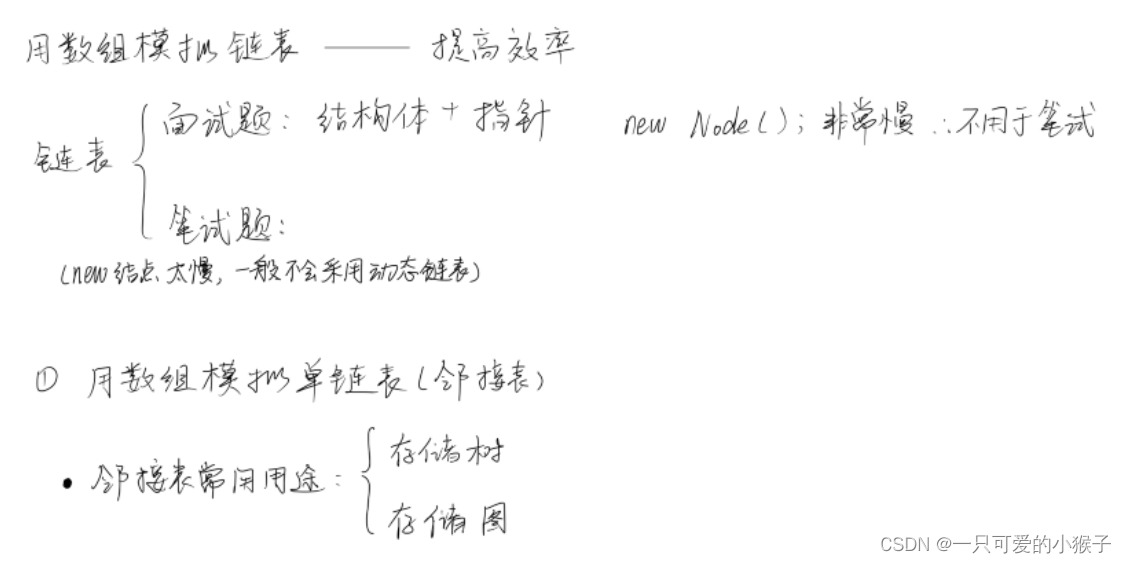 用数组模拟链表 —— 提高效率
链表 { 面试题：结构体 + 指针 new Node(); 非常慢 ∴不用于笔试
笔试题：
(new结点太慢，一般不会采用动态链表)
① 用数组模拟单链表(邻接表)
• 邻接表常用用途： { 存储树
存储图
CSDN @一只可爱的小猴子